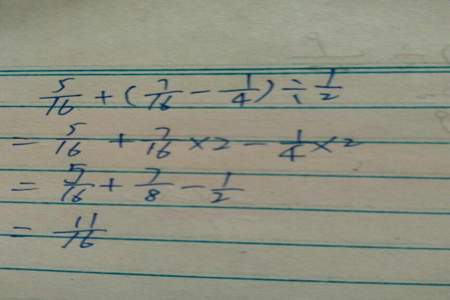 5/16 + (7/16 - 1/4) ÷ 1/2
= 5/16 + 7/16 × 2 - 1/4 × 2
= 5/16 + 7/8 - 1/2
= 11/16